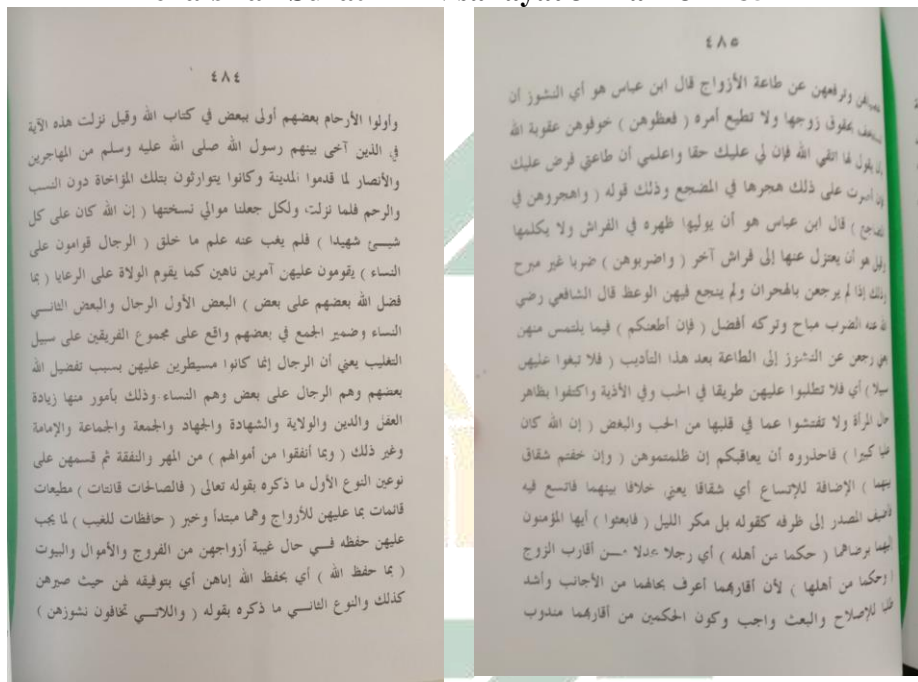 ٤٨٤
وأولوا الأرحام بعضهم أولى ببعض في كتاب الله وقيل نزلت هذه الآية
في الذين آخى بينهم رسول الله صلى الله عليه وسلم من المهاجرين
والأنصار لما قدموا المدينة وكانوا يتوارثون بتلك المؤاخاة دون النسب
والرحم فلما نزلت ولكل جعلنا موالي نسختها ( إن الله كان على كل
شيئ شهيدا ) فلم يغب عنه علم ما خلق ( الرجال قوامون على
النساء ) يقومون عليهن آمرين ناهين كما يقوم الولاة على الرعايا ( بما
فضل الله بعضهم على بعض ) البعض الأول الرجال والبعض الثاني
النساء وضمير الجمع في بعضهم واقع على مجموع الفريقين على سبيل
التغليب يعني أن الرجال إنما كانوا مسيطرين عليهن بسبب تفضيل الله
بعضهم وهم الرجال على بعض وهم النساء وذلك بأمور منها زيادة
العقل والدين والولاية والشهادة والجهاد والجمعة والجماعة والإمامة
وغير ذلك ( وبما أنفقوا من أموالهم ) من المهر والنفقة ثم قسمهن على
نوعين النوع الأول ما ذكره بقوله تعالى ( فالصالحات قانتات ) مطيعات
قائمات بما عليهن للأزواج وهما مبتدأ وخبر ( حافظات للغيب ) لما يجب
عليهن حفظه في حال غيبة أزواجهن من الفروج والأموال والبيوت
( بما حفظ الله ) أي بحفظ الله إياهن أي بتوفيقه لهن حيث صيرهن
كذلك والنوع الثاني ما ذكره بقوله ( واللاتي تخافون نشوزهن )
٤٨٥
وترفعهن عن طاعة الأزواج قال ابن عباس هو أي النشوز أن
بحقوق زوجها ولا تطيع أمره ( فعظوهن ) خوفوهن عقوبة الله
بأن يقول لها اتقي الله فإن لي عليك حقا واعلمي أن طاعتي فرض عليك
فإن أصرت على ذلك هجرها في المضجع وذلك قوله ( واهجروهن في
المضاجع ) قال ابن عباس هو أن يوليها ظهره في الفراش ولا يكلمها
وقيل هو أن يعتزل عنها إلى فراش آخر ( واضربوهن ) ضربا غير مبرح
وذلك إذا لم يرجعن بالهجران ولم ينجع فيهن الوعظ قال الشافعي رضي
الله عنه الضرب مباح وتركه أفضل ( فإن أطعنكم ) فيما يلتمس منهن
رجعن عن النشوز إلى الطاعة بعد هذا التأديب ( فلا تبغوا عليهن
سبيلا ) أي فلا تطلبوا عليهن طريقا في الحب وفي الأذية واكتفوا بظاهر
حال المرأة ولا تفتشوا عما في قلبها من الحب والبغض ( إن الله كان
عليا كبيرا ) فاحذروه أن يعاقبكم إن ظلمتموهن ( وإن خفتم شقاق
بينهما ) الإضافة للإتساع أي شقاقا يعني خلافا بينهما فاتسع فيه
فأضيف المصدر إلى ظرفه كقوله بل مكر الليل ( فابعثوا ) أيها المؤمنون
إليهما برضاهما ( حكما من أهله ) أي رجلا عدلا من أقارب الزوج
( وحكما من أهلها ) لأن أقاربهما أعرف بحالهما من الأجانب وأشد
طلبا للإصلاح والبعث واجب وكون الحكمين من أقاربهما مندوب